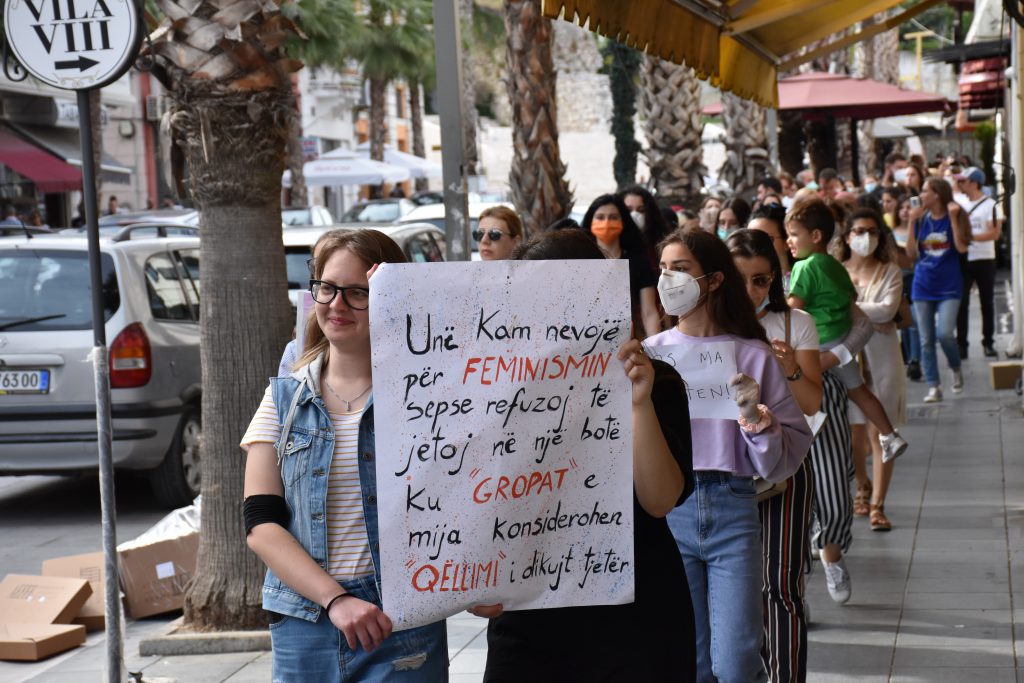 VILA
VIII
63 00
Unë Kam nevojë
për FEMINISMIN
sepse refuzoj të
jetoj në një botë
ku "GROPAT" e
mija konsiderohen
"QËLLIMI" i dikujt tjetër
MA